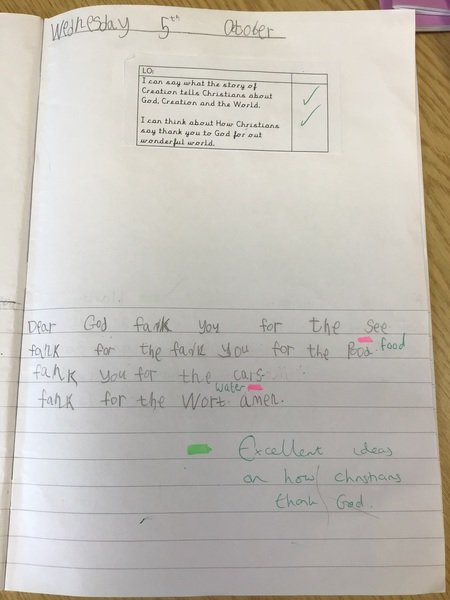 Wednesday 5th Otober
LO:
I can say what the story of
Creation tells Christians about
God, Creation and the World.
I can think about How Christians
say thank you to God for out
wonderful world.
Dear God fank you for the see
fank for the fank you for the food food
fank you for the cars
water
fank for the Wort. amen.
Excellent ideas
on how christians
thank God.